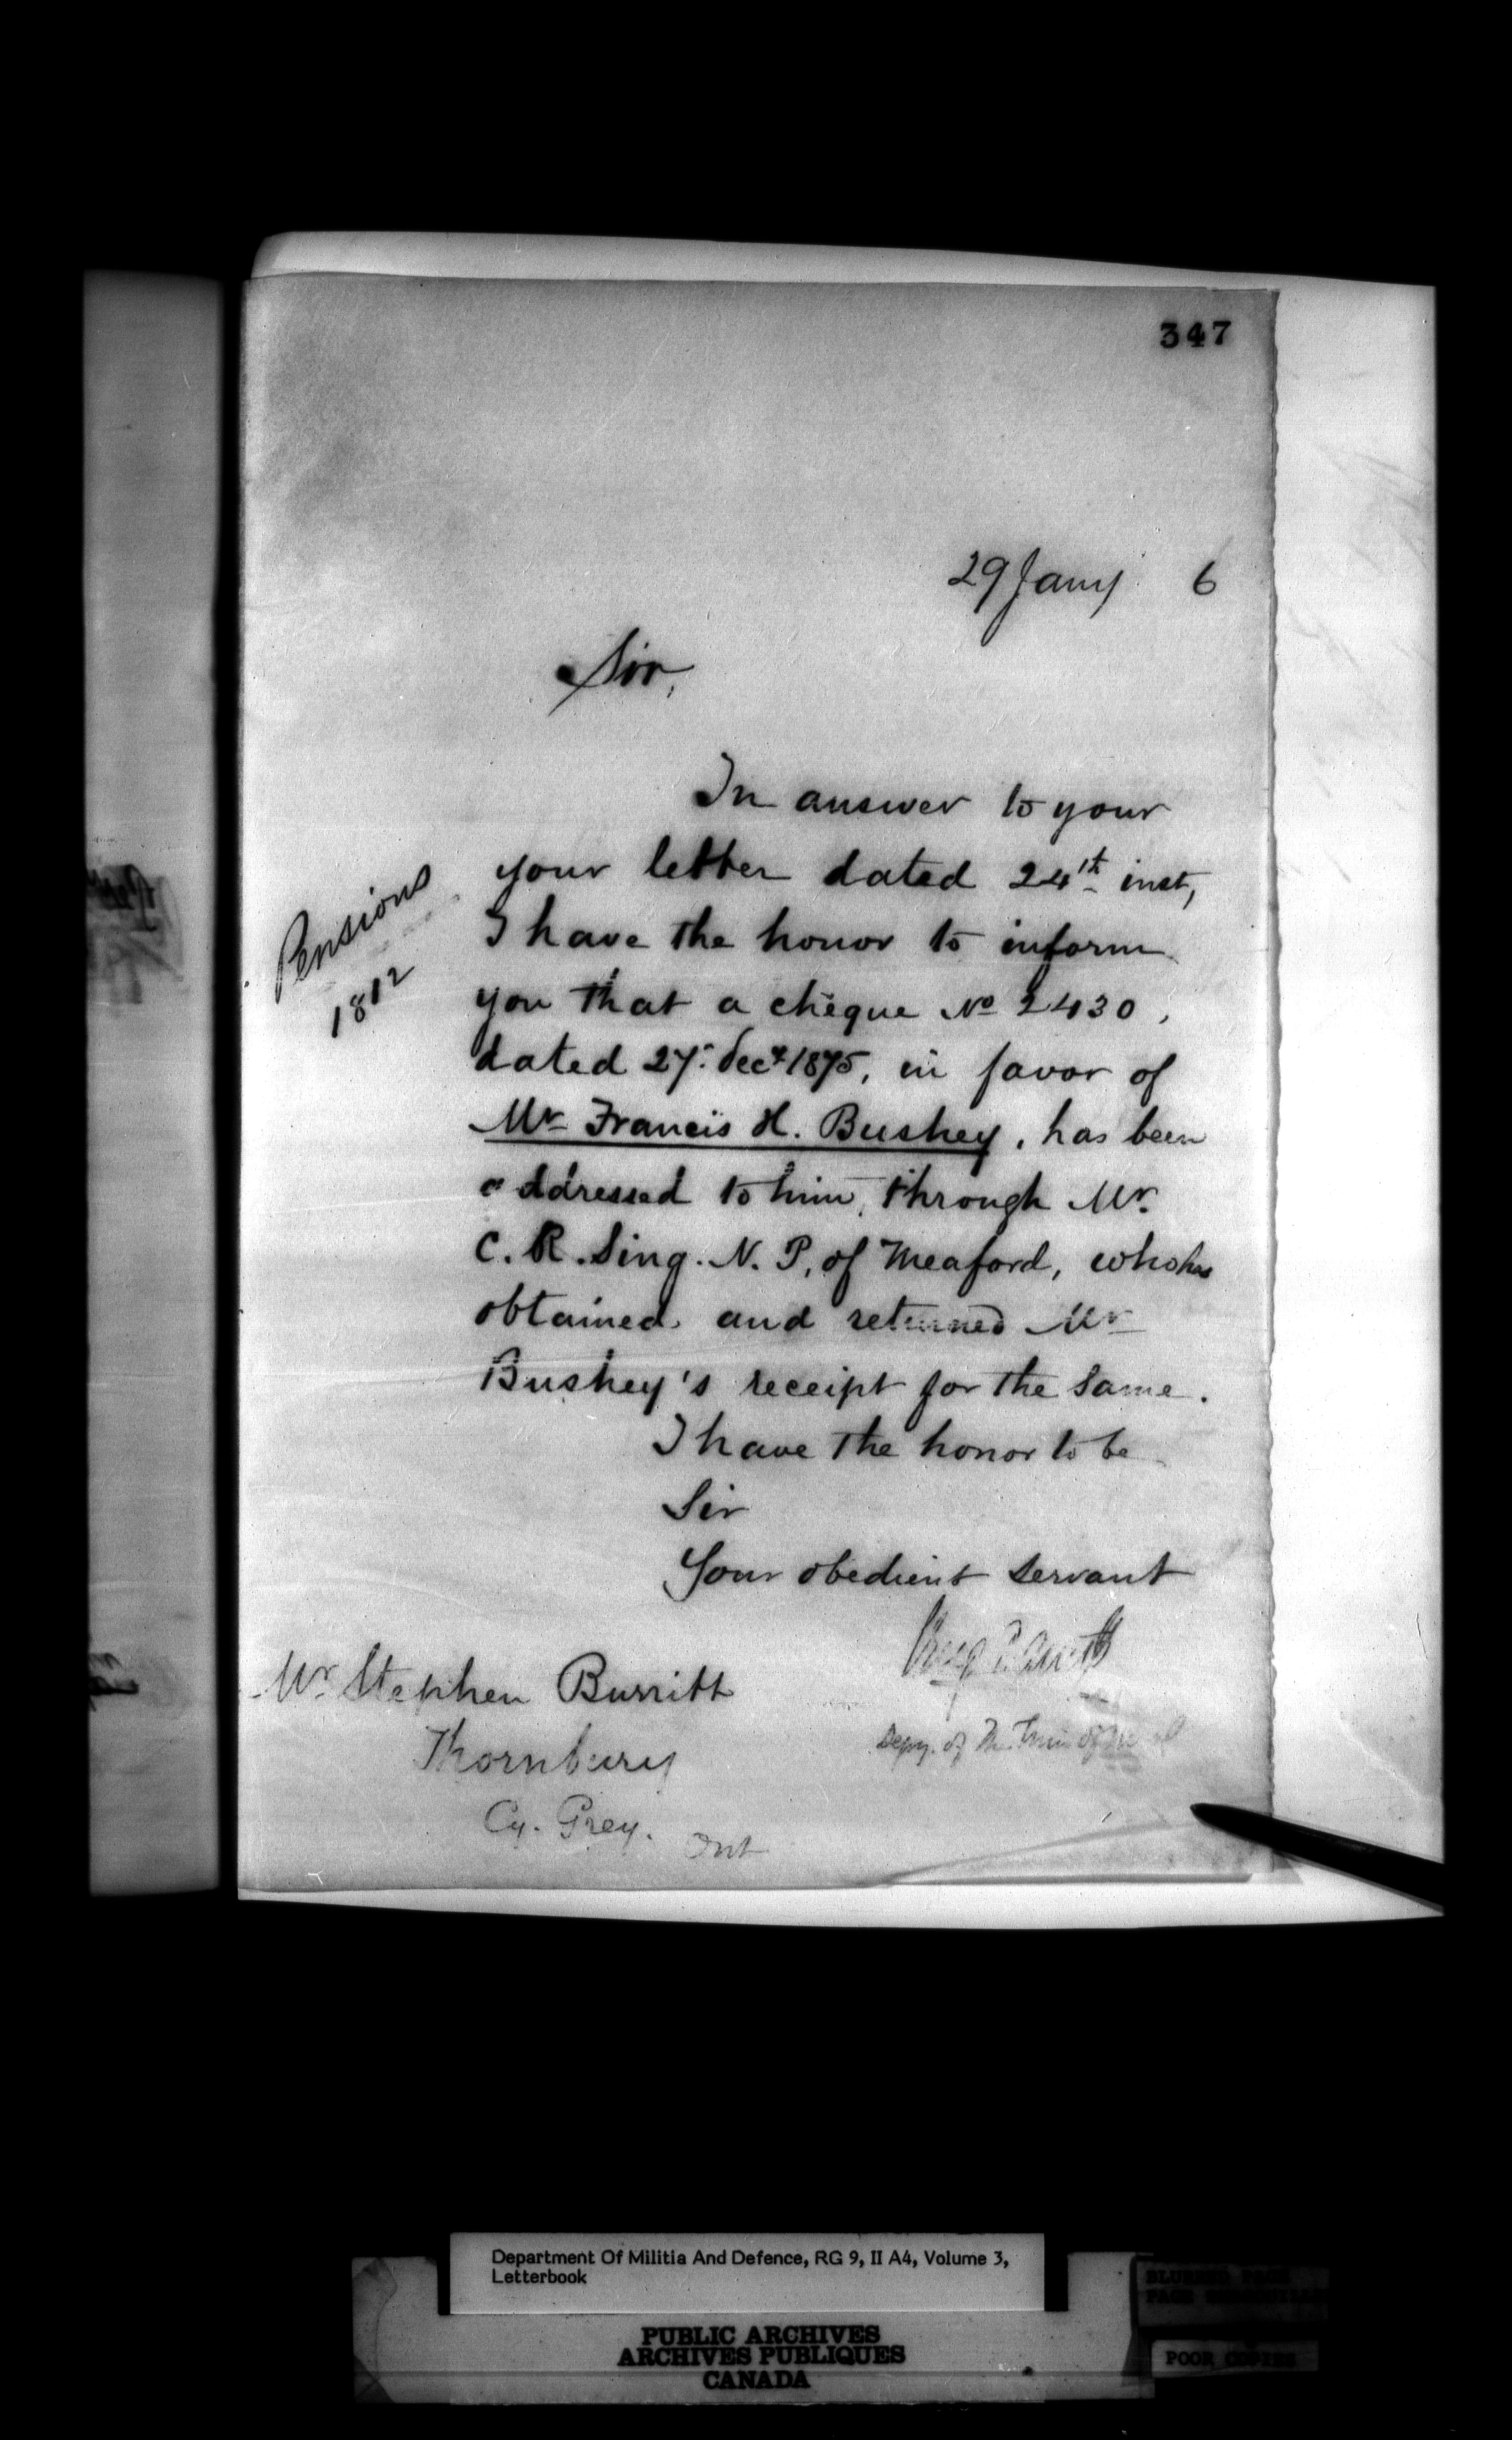 347
29 Jany 6
Sir,
In answer to your
your letter dated 24th inst,
I have the honor to inform
you that a chèque No 2430,
dated 27. Decr 1875, in favor of
Mr Francis H. Bushey, has been
addressed to him, through Mr.
C. R. Sing. N. P, of Meaford, who has
obtained and returned Mr
Bushey's receipt for the same.
I have the honor to be
Sir
Your obedient servant
Depy. of the Min of
Mr Stephen Burritt
Thornbury
Cy. Grey. Ont
Pensions
1812
Department Of Militia And Defence, RG 9, II A4, Volume 3,
Letterbook
PUBLIC ARCHIVES
ARCHIVES PUBLIQUES
CANADA
BLURRED PAGE
POOR COPIES